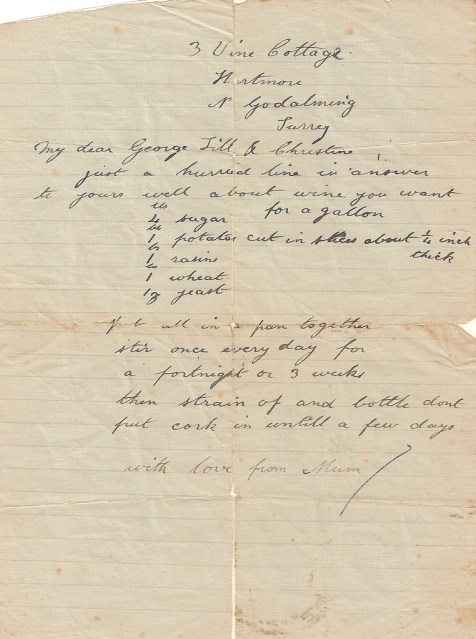 3 Vine Cottage
Hurtmore
N Godalming
Surrey
My dear George Jill & Christine
just a hurred line in answer
to yours well about wine you want
lb
4 sugar for a gallon
lb
1 potatoe cut in slices about 1/4 inch
lb
1 rasins thick
lb
1 wheat
1 oz yeast
Put all in a pan together
stir once every day for
a fortnight or 3 weeks
then strain of and bottle dont
put cork in untill a few days
with love from Mum